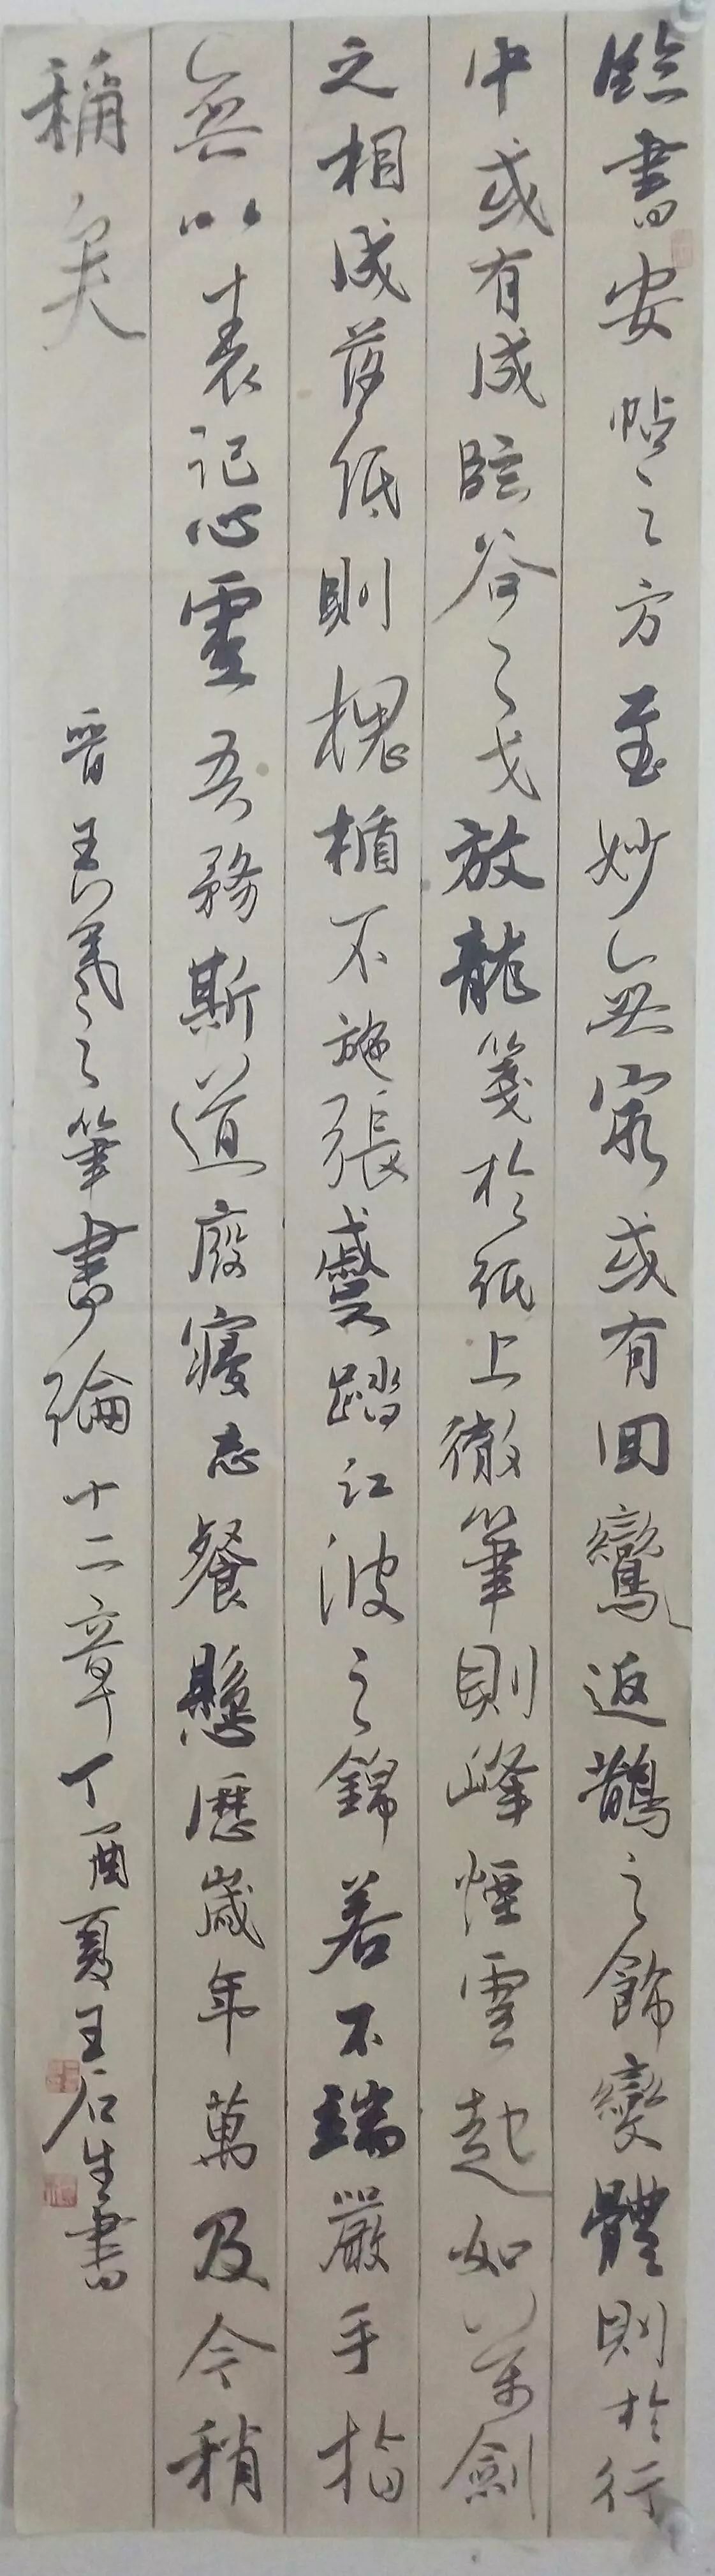 臨書安帖之方至妙無窮或有回鸞返鵲之飾變體則於行
中或有成臨谷之戈放龍箋於紙上徹筆則峰煙雲起如萬劍
之相成落紙則槐楯不施張蹙踏江波之錦若不端嚴手指
無以表記心靈吾務斯道廢寢忘餐懸歷歲年萬及今稍
稱矣
晋王羲之筆書論十二章丁酉夏王石生書